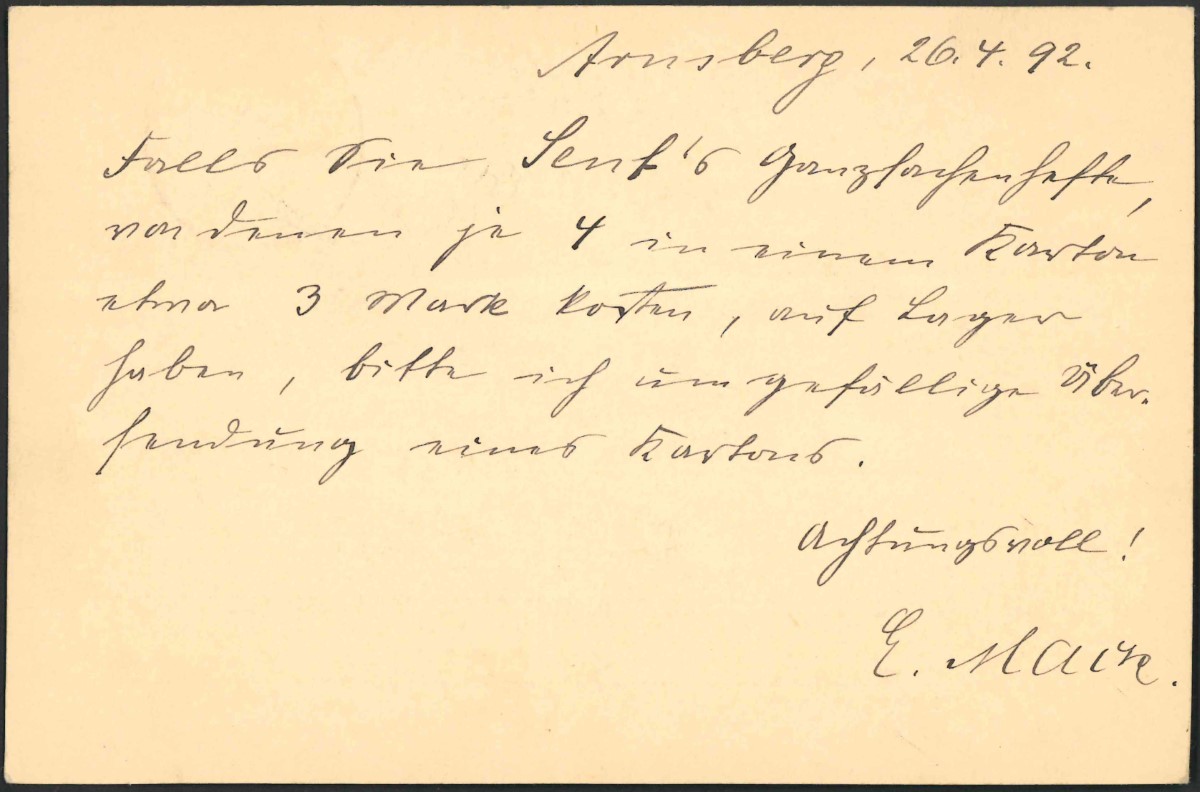 Arnsberg, 26.4.92.
Falls Sie Senf's Ganzsachenhefte,
von denen je 4 in einem Karton
etwa 3 Mark kosten, auf Lager
haben, bitte ich um gefällige Über-
sendung eines Kartons.
Achtungsvoll!
E. Mack.